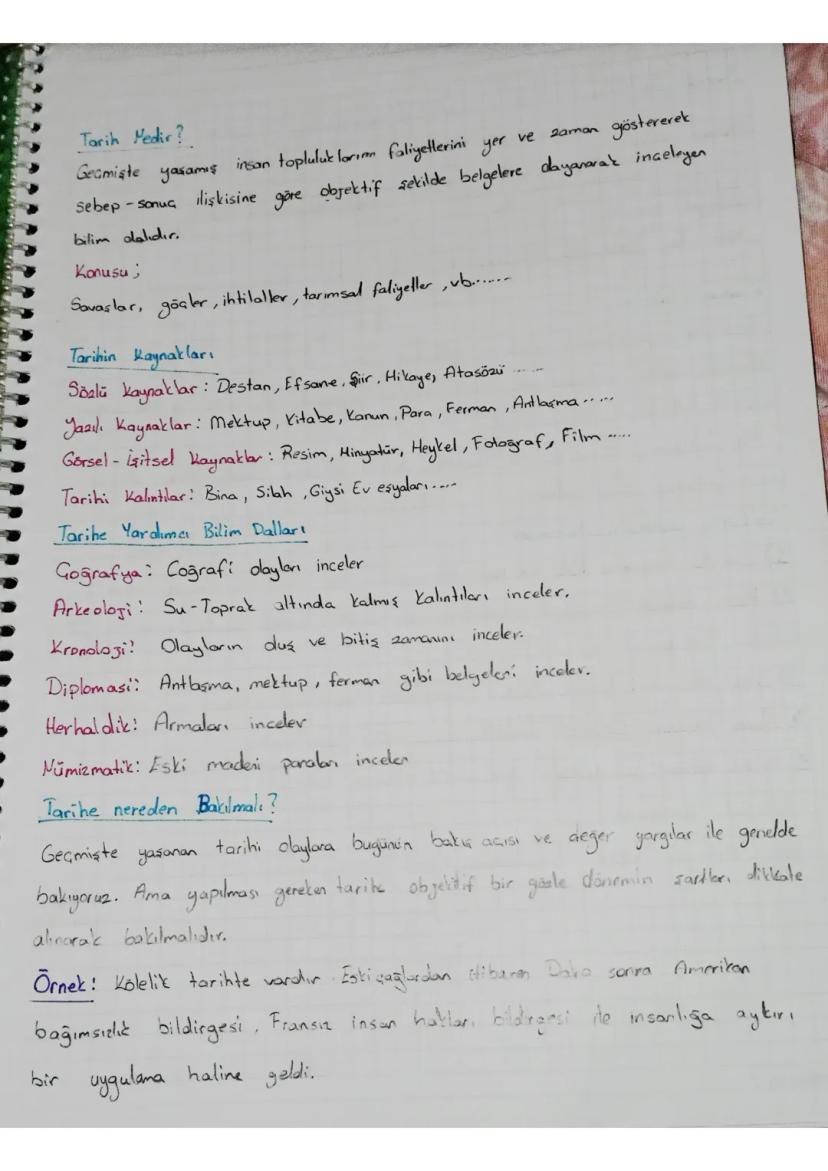 Tarih Nedir?
Geçmişte yaşamış insan topluluklarının faliyetlerini yer ve zaman göstererek
sebep-sonuç ilişkisine göre objektif şekilde belgelere dayanarak inceleyen
bilim dalıdır.
Konusu;
Savaşlar, göçler, ihtilaller, tarımsal faliyeller, vb......
Tarihin Kaynakları
Sözlü kaynaklar: Destan, Efsane, Şiir, Hikaye, Atasözü .....
Yazılı Kaynaklar: Mektup, Kitabe, Kanun, Para, Ferman, Antlaşma.....
Görsel-İşitsel Kaynaklar: Resim, Minyatür, Heykel, Fotoğraf, Film .....
Tarihi Kalıntılar: Bina, Silah, Giysi Ev eşyaları....
Tarihe Yardımcı Bilim Dalları
Coğrafya: Coğrafi olayları inceler
Arkeoloji: Su-Toprak altında kalmış kalıntıları inceler.
Kronoloji: Olayların oluş ve bitiş zamanını inceler.
Diplomasi: Antlaşma, mektup, ferman gibi belgeleri inceler.
Herhaldik: Armaları inceler
Nümizmatik: Eski madeni paraları inceler
Tarihe nereden Bakılmalı?
Geçmişte yaşanan tarihi olaylara bugünün bakış açısı ve değer yargılar ile genelde
bakıyoruz. Ama yapılması gereken tarihe objektif bir gözle dönemin şartları dikkate
alınarak bakılmalıdır.
Örnek: Kölelik tarihte vardır. Eski çağlardan itibaren Daha sonra Amerikan
bağımsızlık bildirgesi, Fransız insan hakları bildirgesi ile insanlığa aykırı
bir uygulama haline geldi.